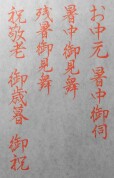 お中元 暑中御伺
暑中御見舞
残暑御見舞
祝敬老 御歳暮 御祝